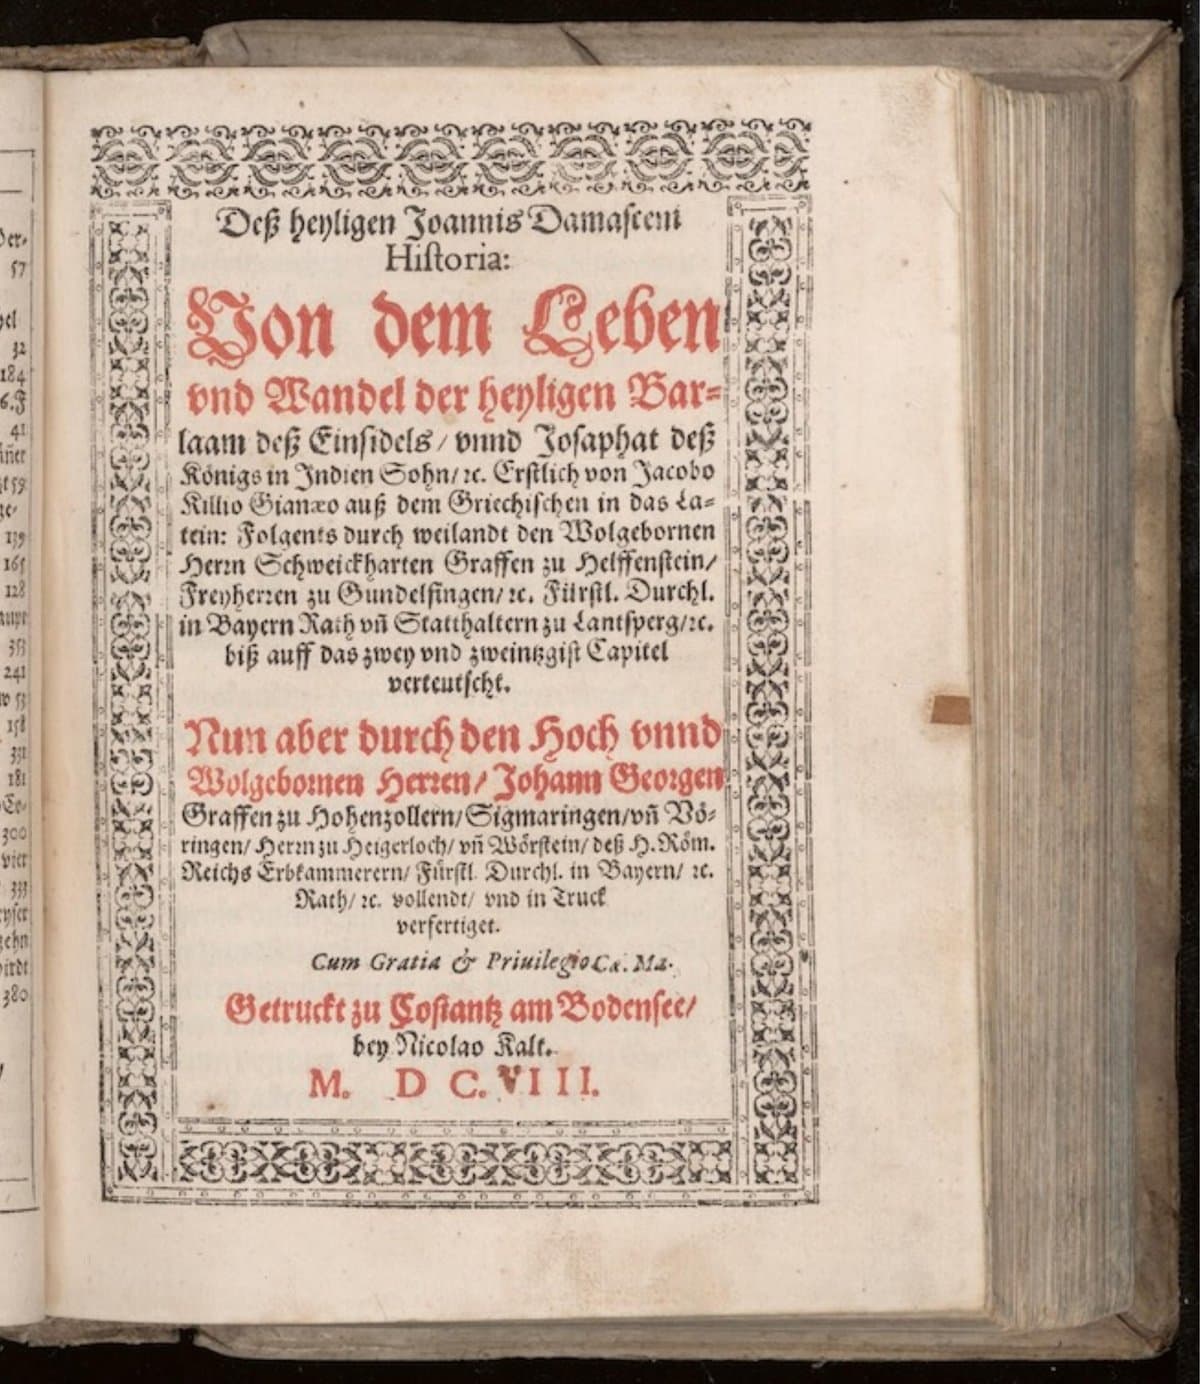 Der-
57
32
184
6.F
41
159
ze-
139
165
128
353
241
w 53
158
331
181
300
vier
333
yser
zehn
wirdt
380
Deß heyligen Joannis Damasceni
Historia:
Von dem Leben
vnd Wandel der heyligen Bar-
laam deß Einsidels / vnnd Josaphat deß
Königs in Indien Sohn/ ꝛc. Erstlich von Jacobo
Killio Gianæo auß dem Griechischen in das La-
tein: Folgents durch weilandt den Wolgebornen
Herrn Schweickharten Graffen zu Helffenstein/
Freyherren zu Gundelfingen/ ꝛc. Fürstl. Durchl.
in Bayern Rath vñ Statthaltern zu Lantsperg/ꝛc.
biß auff das zwey vnd zweintzgist Capitel
verteutscht.
Nun aber durch den Hoch vnnd
Wolgebornen Herren/ Johann Georgen
Graffen zu Hohenzollern/ Sigmaringen/vñ Vö-
ringen/ Herrn zu Heigerloch/ vñ Wörstein/ deß H. Röm.
Reichs Erbkammerern/ Fürstl. Durchl. in Bayern/ ꝛc.
Rath/ ꝛc. vollendt/ vnd in Truck
verfertiget.
Cum Gratia & Priuilegio Cæ. Ma.
Getruckt zu Costantz am Bodensee/
bey Nicolao Kalt.
M. D C. VIII.